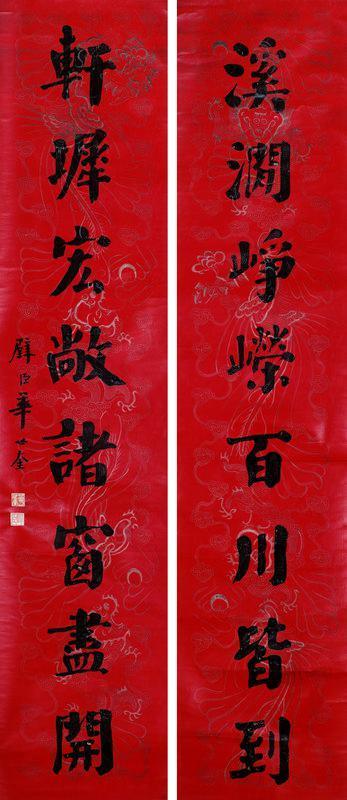 溪澗崢嶸百川皆到
軒墀宏敞諸窗盡開
璧臣華世奎